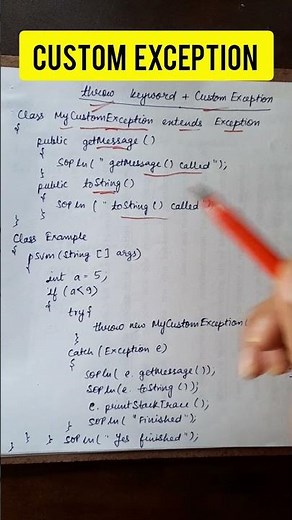 CUSTOM EXCEPTION
throw keyword + Custom Exception
Class MyCustomException extends Exception
{
public getMessage ()
{
SOPln (" getMessage () called");
}
public toString ()
{
SOPln (" toString () called
}
}
Class Example
{
psvm (String [] args)
{
int a = 5,
if (a<9)
{
try{
throw new MyCustomException (
}
catch (Exception e)
{
SOPln (e. getMessage ());
SOPln (e. toString ());
e. printStackTrace ();
SOPln ("Finished");
}
} } } SOPln (" Yes finished");